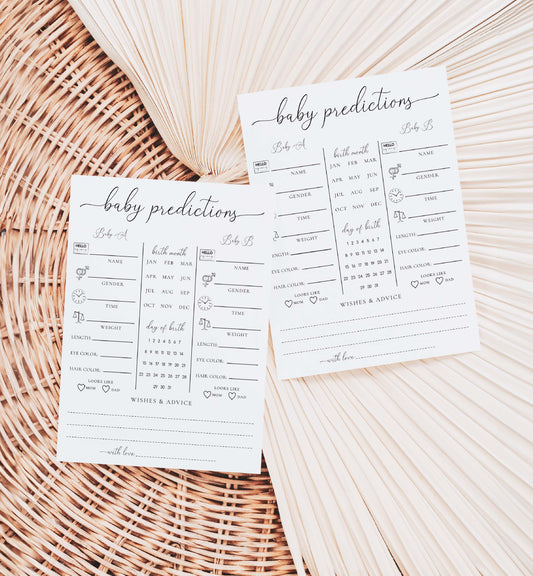 baby predictions
Baby A
Baby B
HELLO
NAME
GENDER
TIME
WEIGHT
LENGTH:
EYE COLOR:
HAIR COLOR:
LOOKS LIKE
MOM DAD
birth month
JAN FEB MAR
APR MAY JUN
JUL AUG SEP
OCT NOV DEC
day of birth
1 2 3 4 5 6 7
8 9 10 11 12 13 14
15 16 17 18 19 20 21
22 23 24 25 26 27 28
29 30 31
HELLO
NAME
GENDER
TIME
WEIGHT
LENGTH:
EYE COLOR:
HAIR COLOR:
LOOKS LIKE
MOM DAD
WISHES & ADVICE
with love
baby predictions
Baby A
Baby B
HELLO
NAME
GENDER
TIME
WEIGHT
LENGTH:
EYE COLOR:
HAIR COLOR:
LOOKS LIKE
MOM DAD
birth month
JAN FEB MAR
APR MAY JUN
JUL AUG SEP
OCT NOV DEC
day of birth
1 2 3 4 5 6 7
8 9 10 11 12 13 14
15 16 17 18 19 20 21
22 23 24 25 26 27 28
29 30 31
HELLO
NAME
GENDER
TIME
WEIGHT
LENGTH:
EYE COLOR:
HAIR COLOR:
LOOKS LIKE
MOM DAD
WISHES & ADVICE
with love